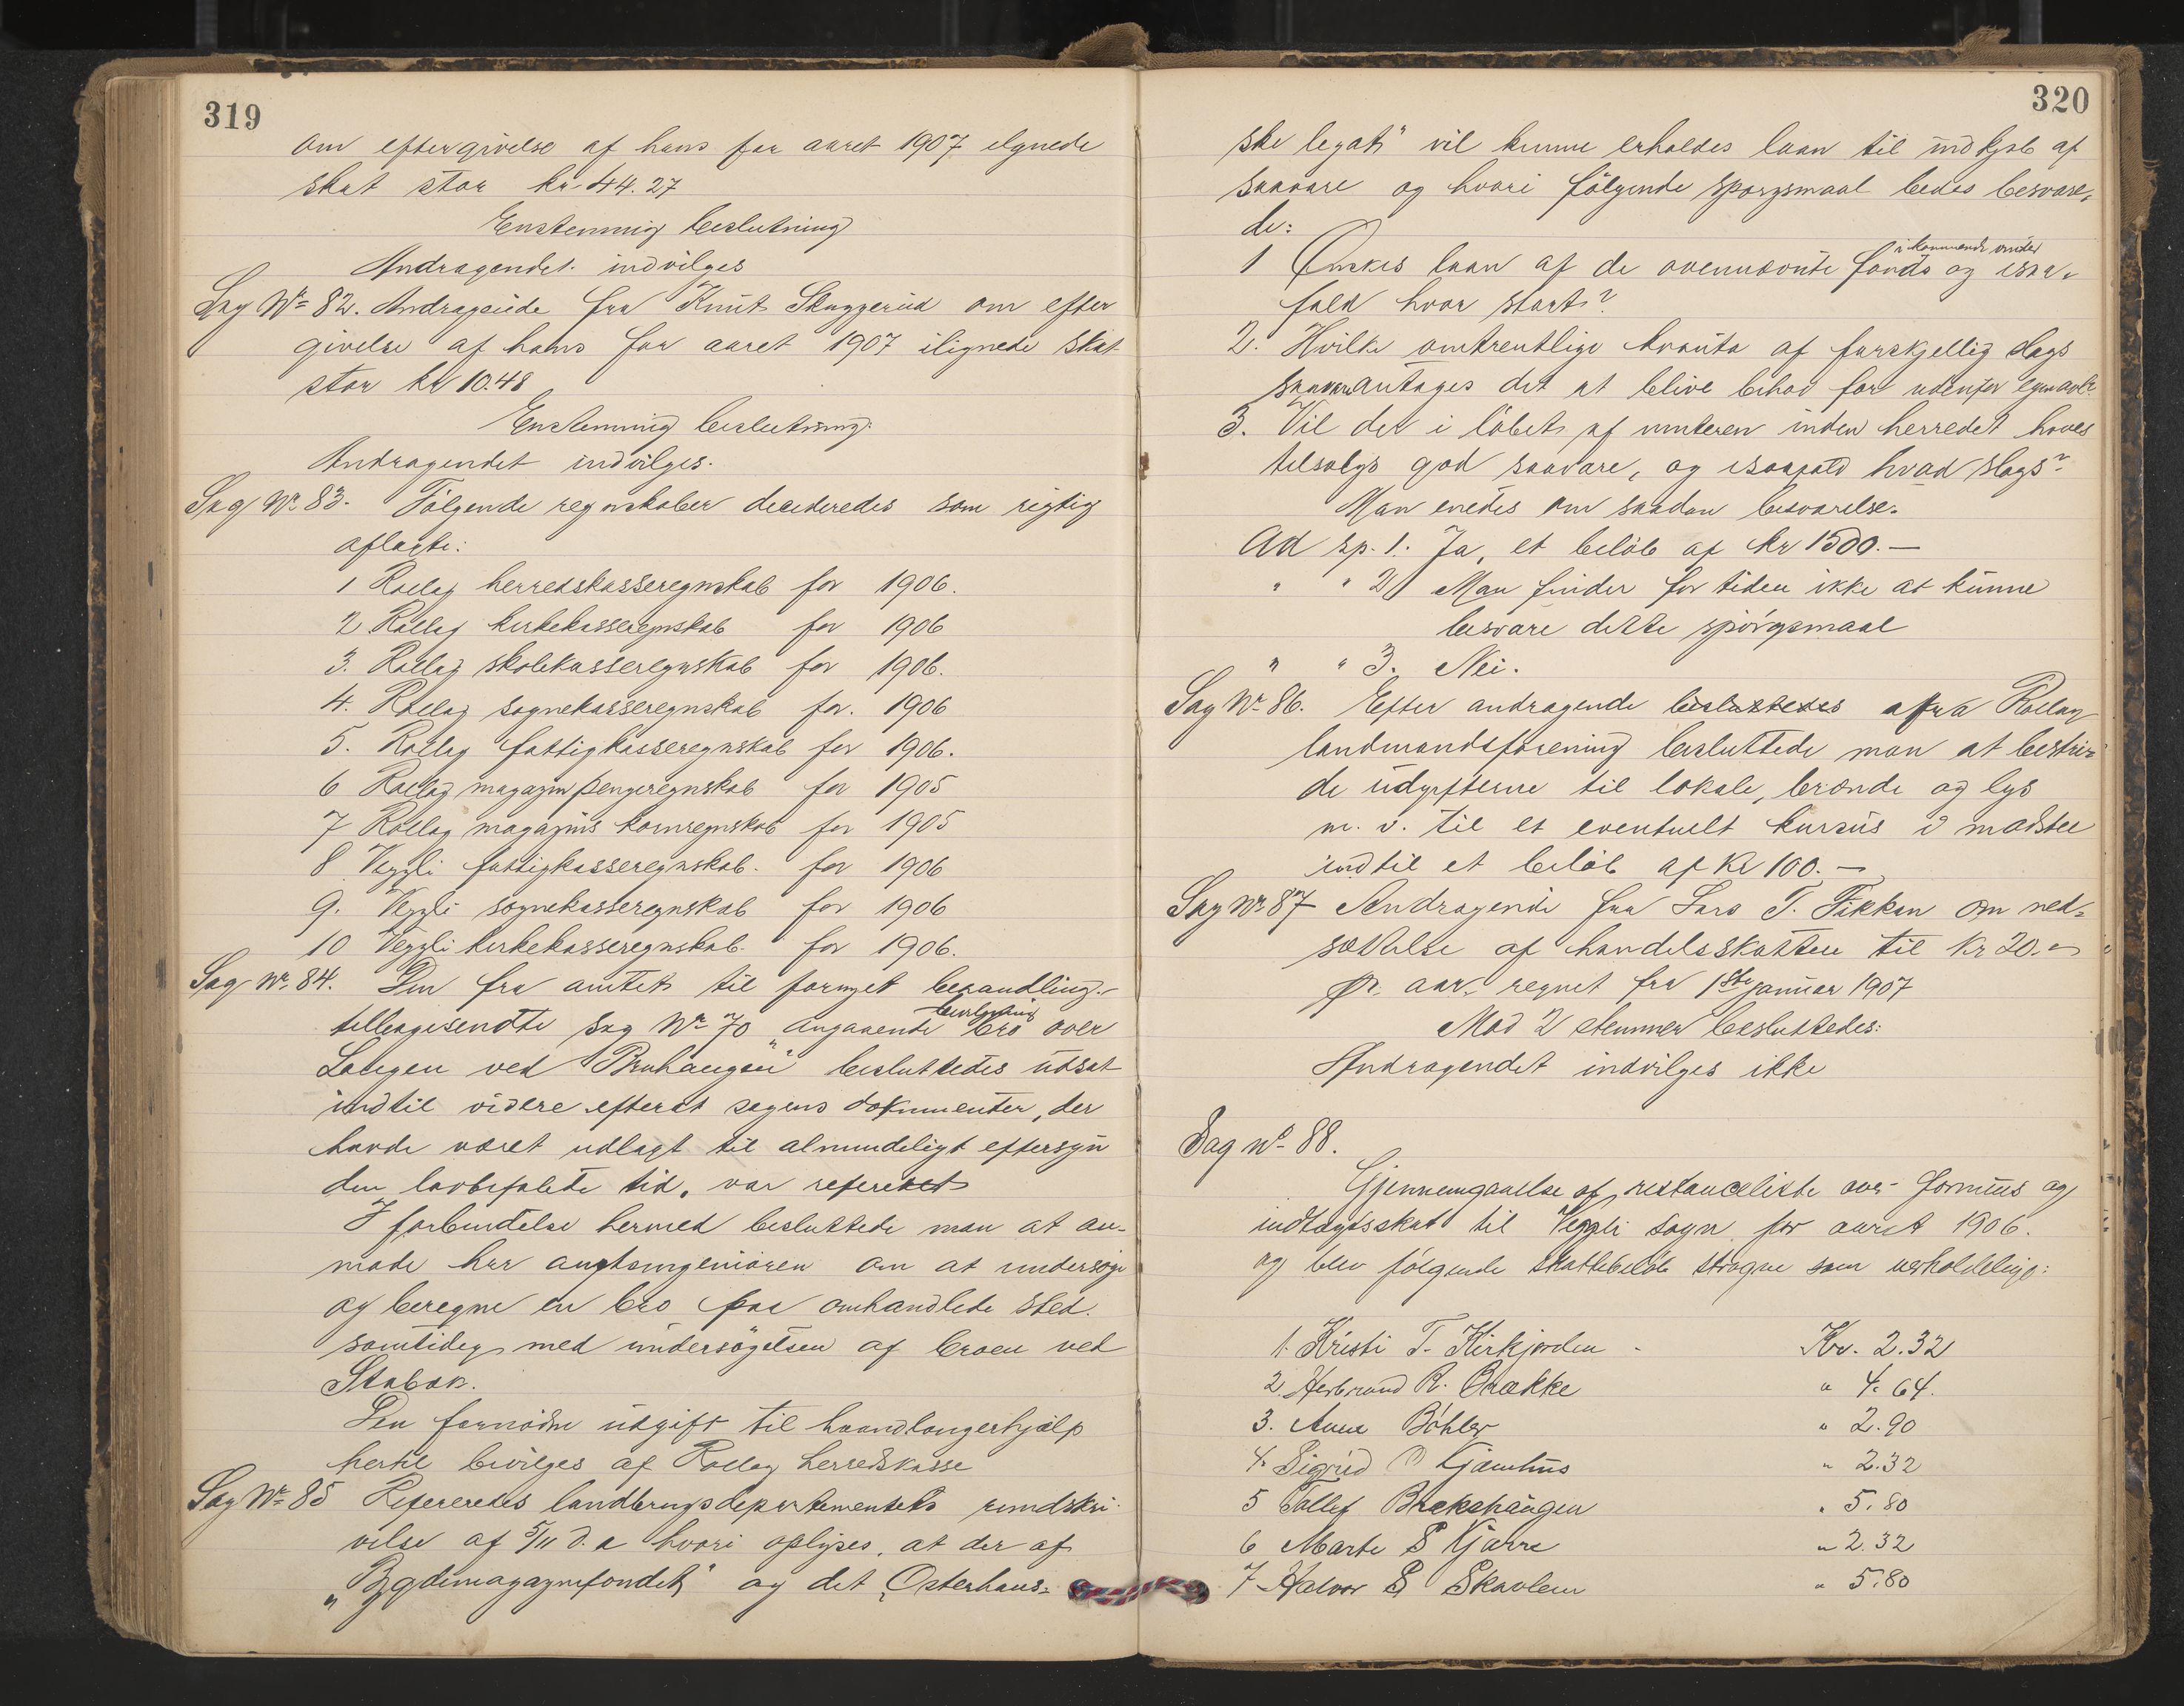 319
om eftergivelse af hans for aaret 1907 ilignede
skat stor kr 44.27
Enstemmig beslutning
Andragendet indvilges
Sag Nr 82. Andragende fra Knut Skuggerud om efter
givelse af hans for aaret 1907 ilignede skat
stor kr 10.48
Enstemmig beslutning.
Andragendet indvilges.
Sag Nr 83. Følgende regnskaber decideredes som rigtig
aflagte:
1 Rollag herredskasseregnskab for 1906.
2 Rollag kirkekasseregnskab for 1906
3. Rollag skolekasseregnskab for 1906.
4. Rollag sognekasseregnskab for. 1906
5. Rollag fattigkasseregnskab for 1906.
6 Rollag magazin pengeregnskab for 1905
7 Rollag magazins kornregnskab for 1905
8 Veggli fattigkasseregnskab. for 1906
9. Veggli sognekasseregnskab for 1906
10 Veggli kirkekasseregnskab. for 1906.
Sag Nr 84. Den fra amtet til fornyet behandling
tilbagesendte sag Nr 70 „angaaende bevilgning bro over
Laagen ved Bruhaugen" besluttedes udsat
indtil videre efterat sagens dokumenter, der
havde været udlagt til almindeligt eftersyn
den lovbefalede tid, var referert
I forbindelse hermed besluttede man at an-
mode hrr amtsingeniøren om at undersøge
og beregne en bro paa omhandlede sted.
samtidig med undersøgelsen af broen ved
Stabæk.
Den fornødne udgift til haandlangerhjælp
hertil bevilges af Rollag herredskasse
Sag Nr 85 Refereredes landbrugsdepartementets rundskri-
velse af 5/11 d.a hvori oplyses, at der af
„Bygdemagazinfondet" og det „Osterhaus-
320
ske legat" vil kunne erholdes laan til indkjøb af
saavare og hvori følgende spørgsmaal bedes besvare-
de:
1 Ønskes laan af de ovennævnte fonds i kommende vinter og isaa-
fald hvor stort?
2. Hvilke omtrentlige kvanta af forskjellig slags
saavare antages det at blive behov for udenfor egenavl?
3. Vil der i løbet af vinteren inden herredet haves
tilsalgs god saavare, og isaafald hvad slags?
Man enedes om saadan besvarelse.
Ad sp. 1. Ja, et beløb af kr 1500.—
" " 2 Man finder for tiden ikke at kunne
besvare dette spørgsmaal
" " 3. Nei.
Sag Nr 86. Efter andragende besluttedes a fra Rollag
landmandsforening besluttede man at bestri-
de udgifterne til lokale, brænde og lys
m. v. til et eventuelt kursus i madstel
indtil et beløb af kr 100.—
Sag Nr 87 Andragende fra Lars T. Fikkan om ned-
sættelse af handelsskatten til kr 20.-
pr. aar. regnet fra 1ste januar 1907
Mod 2 stemmer besluttedes:
Andragendet indvilges ikke
Sag no 88.
Gjennemgaaelse af restanceliste over formues og
indtægtsskat til Veggli sogn for aaret 1906.
og blev følgende skattebeløb strøgne som uerholdelige:
1. Kristi T. Kirkjorden - Kr. 2.32
2 Herbrand R. Brække " 4.64.
3. Anne Bøhler " 2.90
4. Sigrid O Kjemhus " 2.32
5 Tollef Brekehaugen " 5.80
6 Marte S Kjørre " 2.32
7 Halvor S Skavlem " 5.80